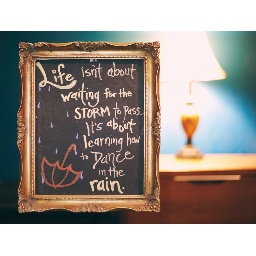 Life isn't about
waiting for the
STORM to Pass.
It's about
learning how
to Dance
in the
rain.